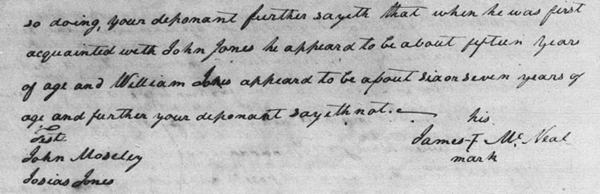 so doing, your deponant further sayeth that when he was first
acquainted with John Jones he appeard to be about fifteen years
of age and William Jones appeard to be about six or seven years of
age and further your deponant sayeth not.
his
Test. James + Mc Neal
John Moseley mark
Josias Jones